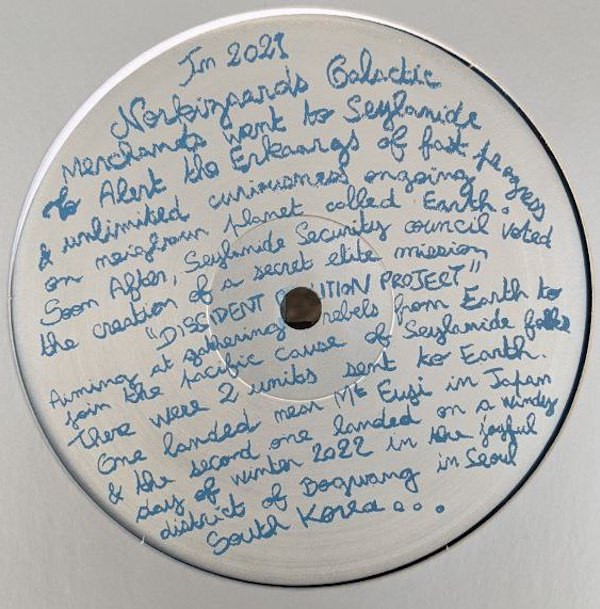 In 2021
Norbizaards Galactic
Merchands went to Seylanide
to Alert the Erkaargs of fast progress
& unlimited curiousness ongoing
on neighown planet called Earth.
Soon After, Seylanide Security council voted
the creation of a secret elite mission
"DISSIDENT PROJECT"
Aiming at gathering rebels from Earth to
join the pacific cause of Seylanide folks
There were 2 units sent to Earth.
One landed near Mt Fuji in Japan
& the second one landed on a windy
day of winter 2022 in the joyful
district of Bogwang in Seoul
South Korea...